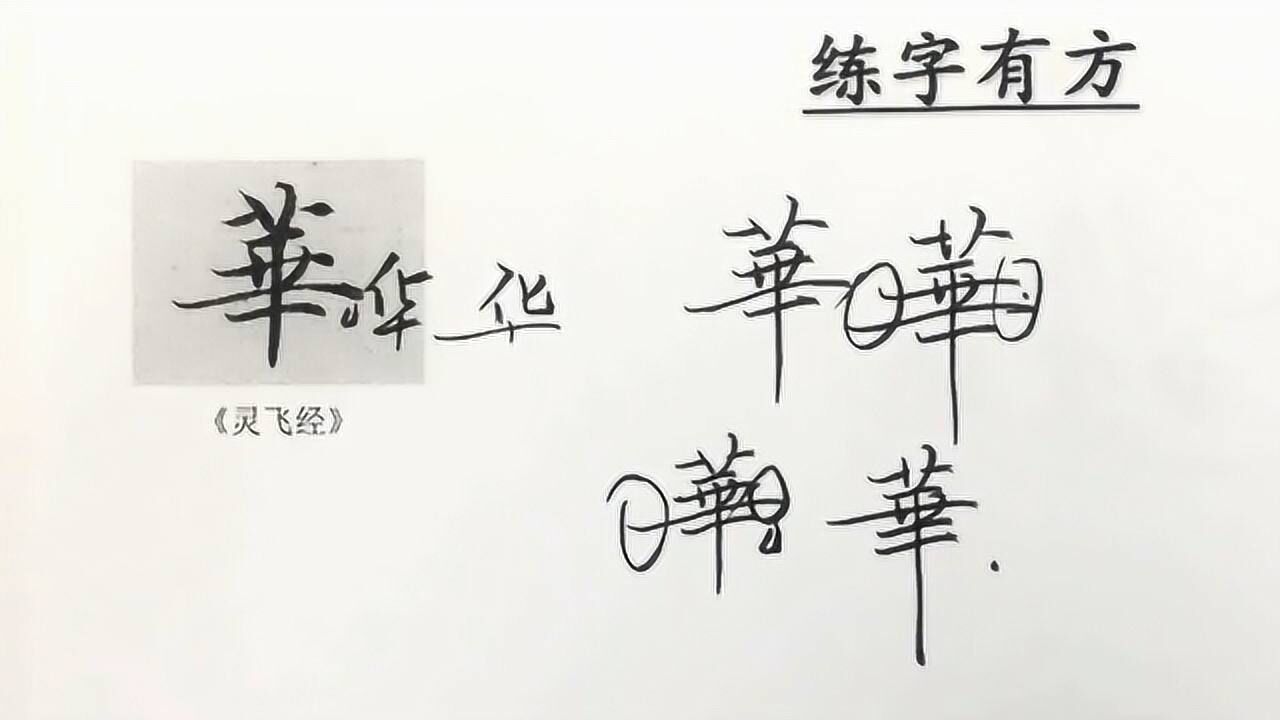 练字有方
華 华 华 華 華
《灵飞经》
華 華